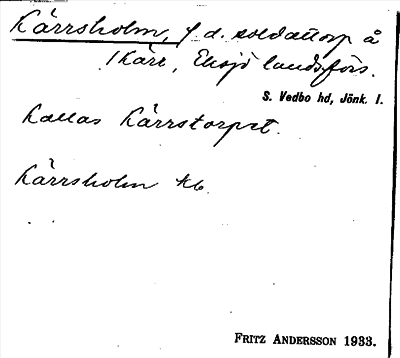 Kärrsholm, f.d. soldattorp å
1 Kärr, Eksjö landsförs.
S. Vedbo hd, Jönk. l.
Kallas Kärrstorpet.
Kärrsholm kb
FRITZ ANDERSSON 1933.